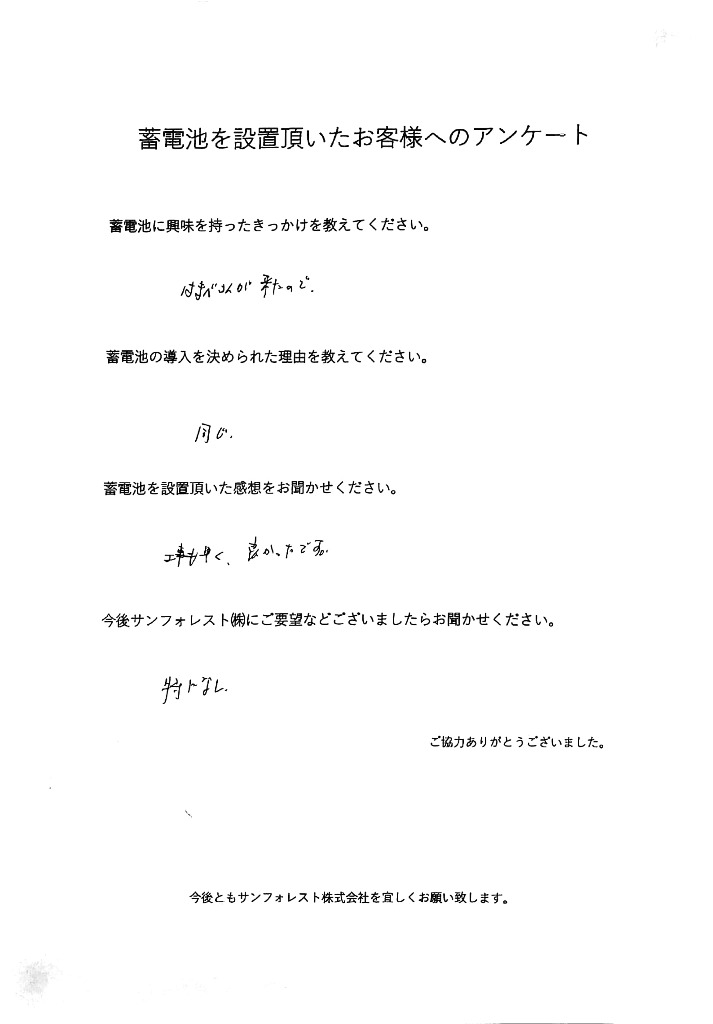 蓄電池を設置頂いたお客様へのアンケート
蓄電池に興味を持ったきっかけを教えてください。
はまべさんが来たので.
蓄電池の導入を決められた理由を教えてください。
同じ.
蓄電池を設置頂いた感想をお聞かせください。
工事も早く、良かったです。
今後サンフォレスト㈱にご要望などございましたらお聞かせください。
特になし.
ご協力ありがとうございました。
今後ともサンフォレスト株式会社を宜しくお願い致します。